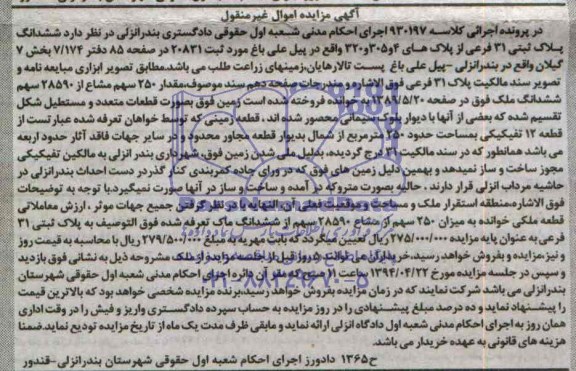 آگهی مزایده اموال غیرمنقول
در پرونده اجرائی کلاسه ۹۳۰۱۹۷ اجرای احکام مدنی شعبه اول حقوقی دادگستری بندرانزلی در نظر دارد ششدانگ
پلاک ثبتی ۳۱ فرعی از پلاک های ۴و۳۰۵و۳۲۰ واقع در پیل علی باغ مورد ثبت ۲۰۸۳۱ در صفحه ۸۵ دفتر ۷/۱۷۴ بخش ۷
گیلان واقع در بندرانزلی -پیل علی باغ پست تالارهایان،زمینهای زراعت طلب می باشد.مطابق تصویر ابرازی مبایعه نامه و
تصویر سند مالکیت پلاک ۳۱ فرعی فوق الاشاره و مندرجات صفحه دهم سند موصوف،مقدار ۲۵۰ سهم مشاع از ۲۸۵۹۰ سهم
ششدانگ ملک فوق در ۱۳۸۹/۵/۲۰ خوانده فروخته شده است زمین فوق بصورت قطعات متعدد و مستطیل شکل
تقسیم شده که بعضی از آنها با دیوار بلوک سیمانی محصور شده اند ، قطعه زمینی که توسط خواهان تعرفه شده عبارتست از
قطعه ۱۲ تفکیکی بمساحت حدود ۲۵۰ مترمربع از شمال بدیوار قطعه مجاور محدود و در سایر جهات فاقد آثار حدود اربعه
می باشد همانطور که در سند مالکیت ۳۱ درج گردیده، بدلیل ملی شدن زمین فوق، شهرداری بندر انزلی به مالکین تفکیکی
مجوز ساخت و ساز نمیدهد و بهمین دلیل زمین های فوق که در ورای جاده کمربندی کنار گذر در دست احداث بندرانزلی در
حاشیه مرداب انزلی قرار دارند ، حالیه بصورت متروکه در آمده و ساخت و ساز در آنها صورت نمیگیرد.با توجه به توضیحات
فوق الاشاره،منطقه استقرار ملک و مساحت و موقعیت فعلی آن،النهایه با در نظر گرفتن جمیع جهات موثر ، ارزش معاملاتی
قطعه ملکی خوانده به میزان ۲۵۰ سهم از مشاع ۲۸۵۹۰ سهم از ششدانگ ماک تعرفه شده فوق التوصیف به پلاک ثبتی ۳۱
فرعی به عنوان پایه مزایده ۲۷۵/۰۰۰/۰۰۰ ریال تعیین میگردد که بابت مهریه به مبلغ ۲۷۹/۵۰۰/۰۰۰ ریال با محاسبه به قیمت روز
و نیز،مزایده و بفروش خواهد رسید،خریداران می توانند ۵ روز قبل از جلسه مزایده از ملک مشروحه ذیل به نشانی فوق بازدید
و سپس در جلسه مزایده مورخ ۱۳۹۴/۰۴/۲۲ ساعت ۱۱ صبح که مقر آن دایره اجرای احکام مدنی شعبه اول حقوقی شهرستان
بندرانزلی می باشد شرکت نمایند که در زمان مزایده بفروش خواهد رسید،برنده مزایده شخصی خواهد بود که بالاترین قیمت
را پیشنهاد نماید و ده درصد مبلغ پیشنهادی را در روز مزایده به حساب سپرده دادگستری واریز و فیش را در وقت اداری
همان روز به اجرای احکام مدنی شعبه اول دادگاه انزلی ارائه نماید و مابقی ظرف مدت یک ماه از تاریخ مزایده تودیع نماید.ضمنا
هزینه های قانونی به عهده خریدار می باشد.
ح۱۳۶۵ دادورز اجرای احکام شعبه اول حقوقی شهرستان بندرانزلی-قندور